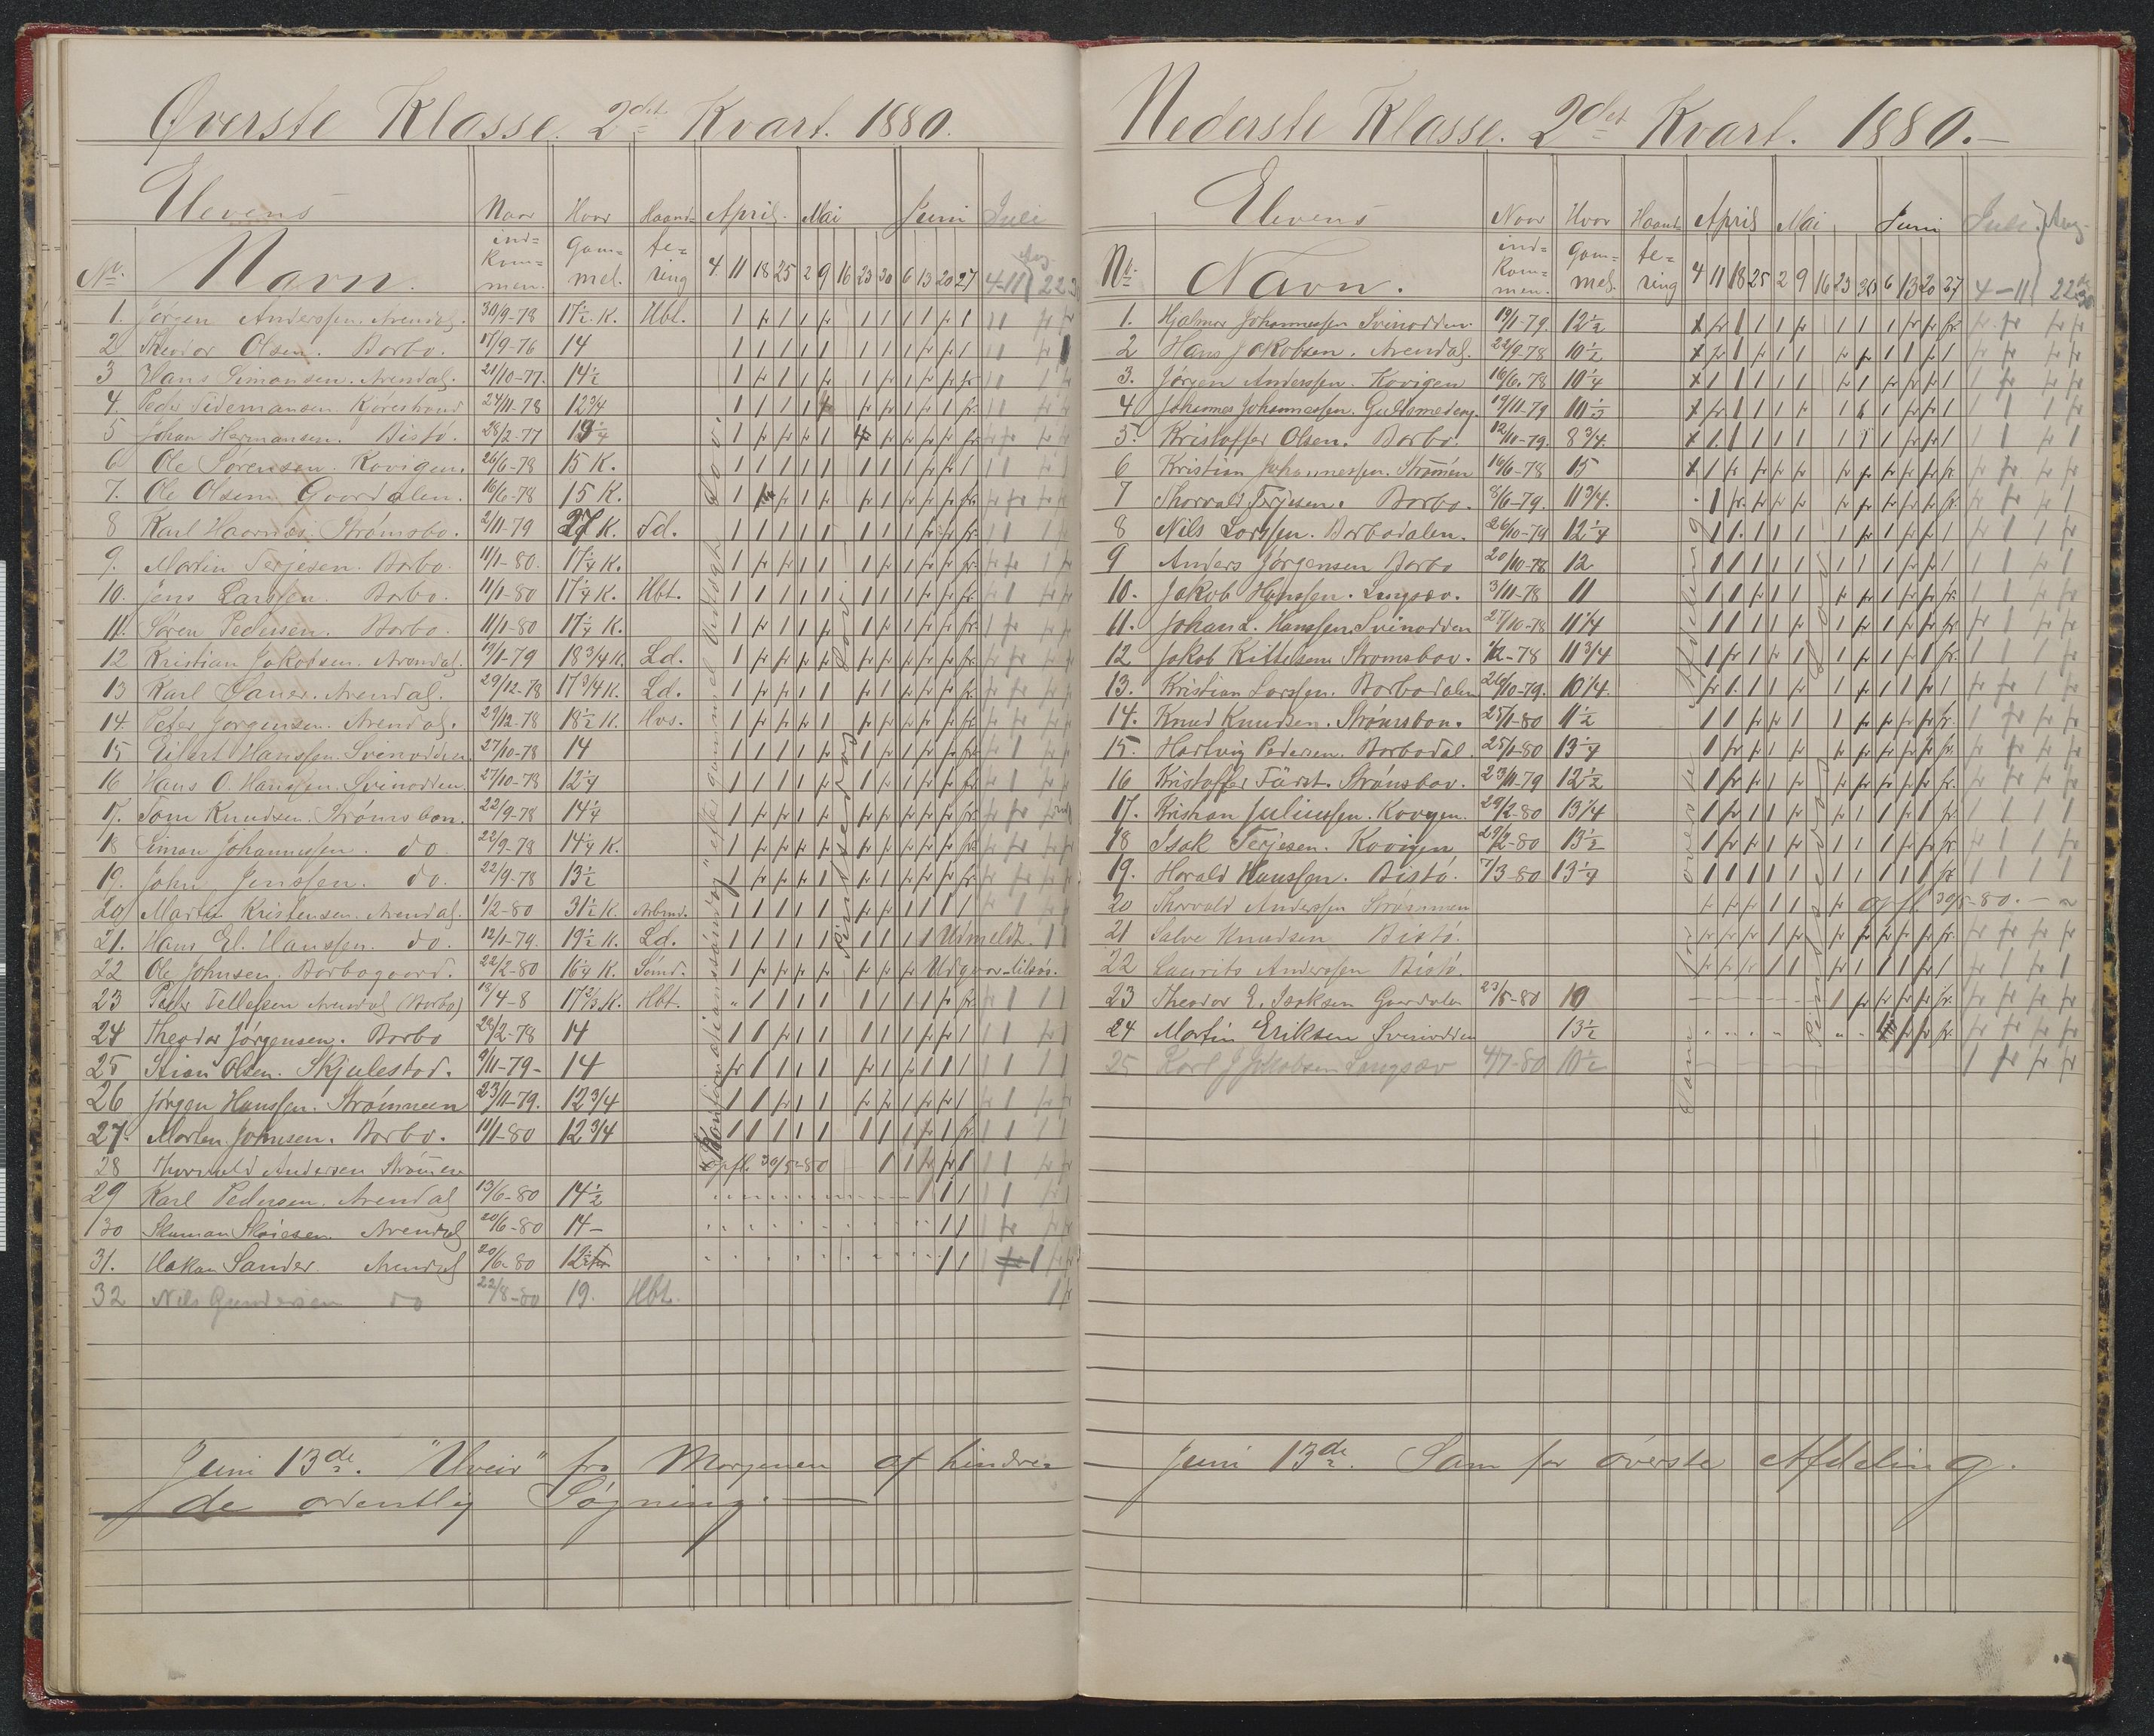 Øverste Klasse. 2det Kvart. 1880.
Elevens Naar Hvor Haand= April. Mai Juni Juli
No. Navn. ind= kom= men. Gam= mel. te= ring 4 11 18 25 2 9 16 23 30 6 13 20 27 4-11 Aug. 22
1. Jørgen Anderssen. Arendal. 30/9-78 17½. K. Hbt.
2 Theodor Olsen. Barbo. 17/9-76 14
3 Hans Simonsen. Arendal. 21/10-77. 14½
4. Peder Tidemansen. 24/11-78 12 3/4
5 Johan Hermansen. Bistø. 28/2-77
6 Ole Sørensen. Kovigen. 26/6-78 15 K.
7. Ole Olsen Goordalen. 16/6-78 15 K.
8 Karl Strømsbo. 2/11-79 27 K.
9. Martin Terjesen. Barbo. 11/1-80. 17¼ K.
10. Jens Larssen. Barbo. 11/1-80 17¼ K. Hbt.
11. Søren Pedersen. Barbo. 11/1-80 17¼ K.
12 Kristian Jakobsen. Arendal. 19/1-79 18 3/4 K. Ld.
13 Karl Sauer. Arendal. 29/12-78 17 3/4 K. Ld.
14. Peter Jørgensen. Arendal. 29/12-78 18½ K. Hvs.
15 Eilert Hanssen. Svinodden 27/10-78 14
16 Hans O. Hanssen. Svinodden. 27/10-78 12¼
17. Tom Knudsen. Strømsbon. 22/9-78 14¼
18 Simon Johannessen. do 22/9-78 14¼ K.
19. John Jenssen. do. 22/9-78 13½
20 Martin Kristensen. Arendal. 1/2-80 31½ K. Arbmd.
21. Hans El. Hanssen. do. 12/1-79. 19½ K. Ld. Udmeldt.
22 Ole Johnsen. Barbogaard. 22/2-80 16¼ K. Sømd. Udgaar-tilsøs.
23 Peder Tellefsen Arendal (Barbo) 18/4-8 17 2/3 K. Hbt.
24 Theodor Jørgensen. Barbo 28/2-78 14
25 Stian Olsen. Skjulestad. 9/11-79- 14
26 Jørgen Hanssen. Strømmen 23/11-79. 12 3/4
27. Morten Johnsen. Barbo. 11/1-80 12 3/4
28 Thorvald Andersen Strømmen opfl. 30/5-80
29 Karl Pedersen. Arendal 13/6-80 14½
30 Arendal 20/6-80 14-
31. Hakan Sander. Arendal 20/6-80 12½
32 Nils Gundersen do 22/8-80 19. Hbt.
"Konfirmationssøndag" efter gammel Udsagt Lov.
Pintsedag Lov.
Juni 13de. "Uveir" fra Morgenen af hindre=
de ordentlig Søgning.
Nederste Klasse. 2det Kvart. 1880.-
Elevens Naar Hvor Haand= April Mai Juni Juli. Aug.
No. Navn. ind= kom= men. Gam= mel. te= ring 4 11 18 25 2 9 16 23 30 6 13 20 27 4-11 22 30
1. Hjalmar Johannessen Svinodden. 19/1-79. 12½
2 Hans Jakobsen. Arendal. 22/9-78 10½
3. Jørgen Anderssen. Kovigen 16/6-78 10¼
4 Johannes Johannessen. Guldsmedeng. 19/11-79 11½
5. Kristoffer Olsen. Barbo. 12/10-79. 8 3/4
6 Kristian Johannessen. Strømmen 16/6-78 15
7 Thorvald Terjesen. Barbo. 8/6-79. 11 3/4.
8 Nils Larssen. Barbodalen. 26/10-79 12¼
9 Anders Jørgensen Barbo 20/10-78 12
10. Jakob Hanssen. Langsæv. 3/11-78 11
11. Johan L. Hanssen Svinodden 27/10-78 11¼
12 Jakob Kittelsen. Strømsbov. 1/12-78 11 3/4
13. Kristian Larssen. Barbodalen 26/10-79. 10¼.
14. Knud Knudsen. Strømsbon. 25/1-80 11½
15. Hartvig Pedersen. Barbodal. 25/1-80 13¼
16 Kristoffer Fürst. Strømsbov. 23/11-79 12½
17. Kristian Juliussen. Kovigen. 29/2-80 13¼
18 Isak Terjesen. Kovigen 29/2-80 13½
19. Harald Hanssen. Bistø. 7/3-80 13¼
20 Thorvald Anderssen Strømmen opfl. 30/5-80.
21 Salve Knudsen Bistø.
22 Laurits Anderssen Bistø.
23 Theodor E. Isaksen Goordalen 23/5-80 10
24 Martin Eriksen Svinodden 13½
25 Karl J Jakobsen Langsæv 4/7-80 10½
Sam for øverste Afdeling
Pintsedag Lov.
Juni 13de. Sam for øverste Afdeling.